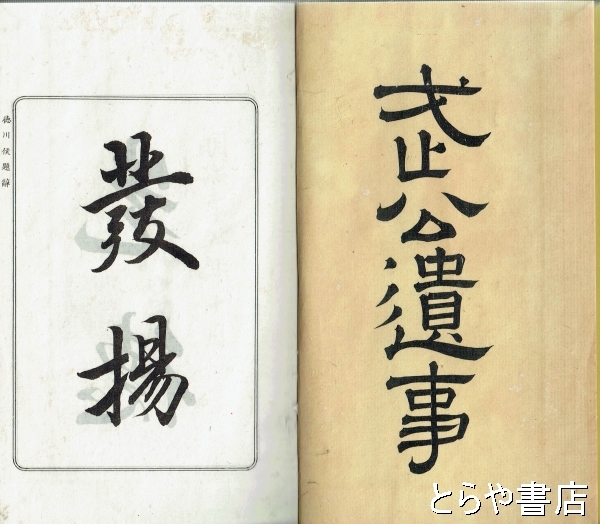 武公遺事
發揚
徳川侯題辭
とらや書店